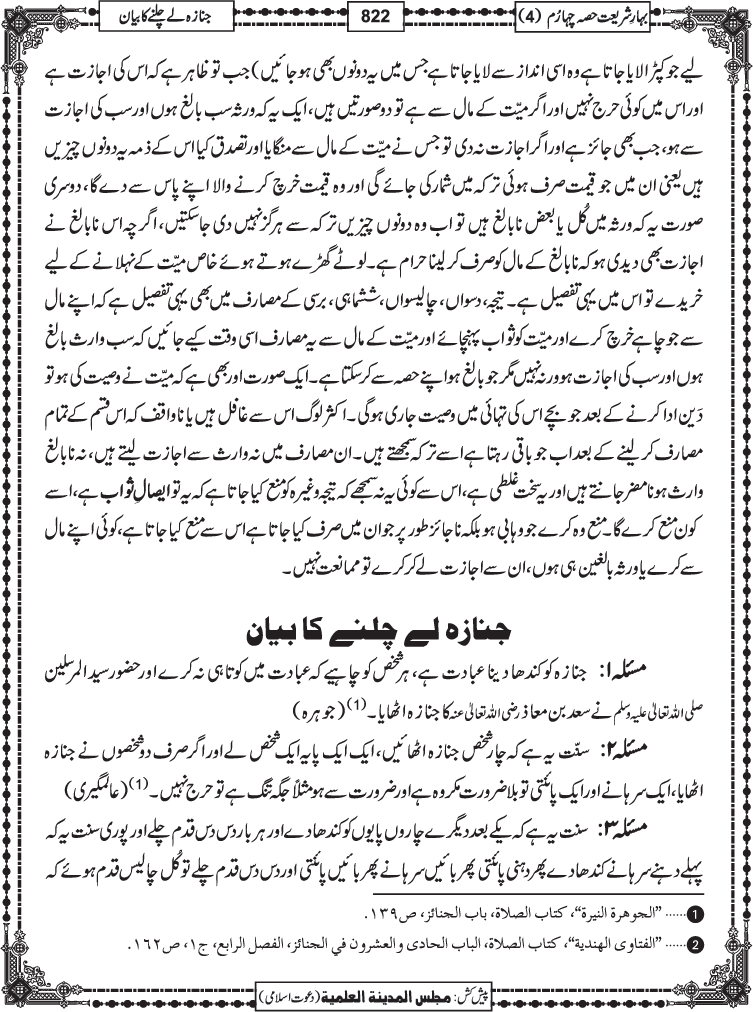 بہارِشریعت حصہ چہارُم (4)
822
جنازہ لے چلنے کا بیان
لیے جو کپڑا لایا جاتا ہے وہ اسی انداز سے لایا جاتا ہے جس میں یہ دونوں بھی ہو جائیں) جب تو ظاہر ہے کہ اس کی اجازت ہے
اور اس میں کوئی حرج نہیں اور اگر میّت کے مال سے ہے تو دو صورتیں ہیں، ایک یہ کہ ورثہ سب بالغ ہوں اور سب کی اجازت
سے ہو، جب بھی جائز ہے اور اگر اجازت نہ دی تو جس نے میّت کے مال سے منگایا اور تصدق کیا اس کے ذمہ یہ دونوں چیزیں
ہیں یعنی ان میں جو قیمت صرف ہوئی ترکہ میں شمار کی جائے گی اور وہ قیمت خرچ کرنے والا اپنے پاس سے دے گا، دوسری
صورت یہ کہ ورثہ میں کُل یا بعض نابالغ ہیں تو اب وہ دونوں چیزیں ترکہ سے ہرگز نہیں دی جا سکتیں، اگرچہ اس نابالغ نے
اجازت بھی دیدی ہو کہ نابالغ کے مال کو صرف کر لینا حرام ہے۔ لوٹے گھڑے ہوتے ہوئے خاص میّت کے نہلانے کے لیے
خریدے تو اس میں یہی تفصیل ہے۔ تیجہ، دسواں، چالیسواں، ششماہی، برسی کے مصارف میں بھی یہی تفصیل ہے کہ اپنے مال
سے جو چاہے خرچ کرے اور میّت کو ثواب پہنچائے اور میّت کے مال سے یہ مصارف اسی وقت کیے جائیں کہ سب وارث بالغ
ہوں اور سب کی اجازت ہو ورنہ نہیں مگر جو بالغ ہو اپنے حصہ سے کر سکتا ہے۔ ایک صورت اور بھی ہے کہ میّت نے وصیت کی ہو تو
دَین ادا کرنے کے بعد جو بچے اس کی تہائی میں وصیت جاری ہوگی۔ اکثر لوگ اس سے غافل ہیں یا ناواقف کہ اس قسم کے تمام
مصارف کر لینے کے بعد اب جو باقی رہتا ہے اسے ترکہ سمجھتے ہیں۔ ان مصارف میں نہ وارث سے اجازت لیتے ہیں، نہ نابالغ
وارث ہونا مضر جانتے ہیں اور یہ سخت غلطی ہے، اس سے کوئی یہ نہ سمجھے کہ تیجہ وغیرہ کو منع کیا جاتا ہے کہ یہ تو ایصالِ ثواب ہے، اسے
کون منع کرے گا۔ منع وہ کرے جو وہابی ہو بلکہ ناجائز طور پر جو ان میں صرف کیا جاتا ہے اس سے منع کیا جاتا ہے، کوئی اپنے مال
سے کرے یا ورثہ بالغین ہی ہوں، ان سے اجازت لے کر کرے تو ممانعت نہیں۔
جنازہ لے چلنے کا بیان
مسئلہ ۱: جنازہ کو کندھا دینا عبادت ہے، ہر شخص کو چاہیے کہ عبادت میں کوتاہی نہ کرے اور حضور سید المرسلین
صلی اللہ تعالیٰ علیہ وسلم نے سعد بن معاذ رضی اللہ تعالیٰ عنہ کا جنازہ اٹھایا۔ (1) (جوہرہ)
مسئلہ ۲: سنّت یہ ہے کہ چار شخص جنازہ اٹھائیں، ایک ایک پایہ ایک شخص لے اور اگر صرف دو شخصوں نے جنازہ
اٹھایا، ایک سرہانے اور ایک پائنتی تو بلا ضرورت مکروہ ہے اور ضرورت سے ہو مثلاً جگہ تنگ ہے تو حرج نہیں۔ (1) (عالمگیری)
مسئلہ ۳: سنت یہ ہے کہ یکے بعد دیگرے چاروں پایوں کو کندھا دے اور ہر بار دس دس قدم چلے اور پوری سنت یہ کہ
پہلے دہنے سرہانے کندھا دے پھر دہنی پائنتی پھر بائیں سرہانے پھر بائیں پائنتی اور دس دس قدم چلے تو کُل چالیس قدم ہوئے کہ
1 ...... ”الجوهرة النيرة“، كتاب الصلاة، باب الجنائز، ص١٣٩.
2 ...... ”الفتاوى الهندية“، كتاب الصلاة، الباب الحادى والعشرون في الجنائز، الفصل الرابع، ج١، ص١٦٢.
پیش کش: مجلس المدینة العلمیة (دعوت اسلامی)